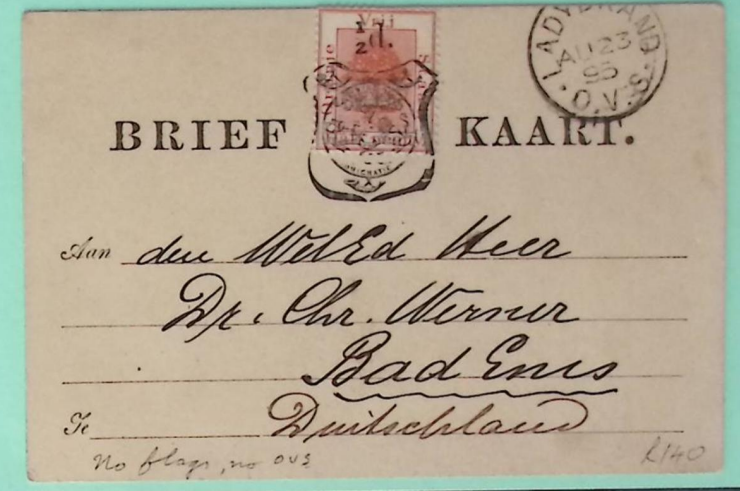 ½d.
LADYBRAND
AU 23
95
O.V.S.
BRIEF KAART.
Aan den WelEd Heer
Dr. Chr. Werner
Bad Ems
Te Duitschland
No flags, no OVS
R140